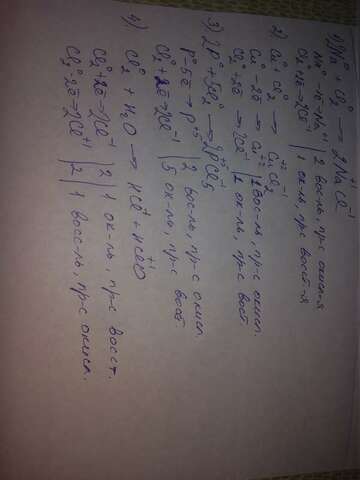 1) 2Na⁰ + Cl₂⁰ → 2Na⁺¹Cl⁻¹
Na⁰ - 1e → Na⁺¹ | 2 вос-ль, пр-с окисл-я
Cl₂⁰ + 2e → 2Cl⁻¹ | 1 ок-ль, пр-с восст-я
2) Cu⁰ + Cl₂⁰ → Cu⁺²Cl₂⁻¹
Cu⁰ - 2e → Cu⁺² | 1 вос-ль, пр-с окисл.
Cl₂⁰ + 2e → 2Cl⁻¹ | 1 ок-ль, пр-с восст
3) 2P⁰ + 5Cl₂⁰ → 2P⁺⁵Cl₅⁻¹
P⁰ - 5e → P⁺⁵ | 2 вос-ль, пр-с окисл.
Cl₂⁰ + 2e → 2Cl⁻¹ | 5 ок-ль, пр-с восст
4) Cl₂⁰ + H₂O → HCl⁻¹ + HCl⁺¹O
Cl₂⁰ + 2e → 2Cl⁻¹ | 2 | 1 ок-ль, пр-с восст.
Cl₂⁰ - 2e → 2Cl⁺¹ | 2 | 1 восс-ль, пр-с окисл.